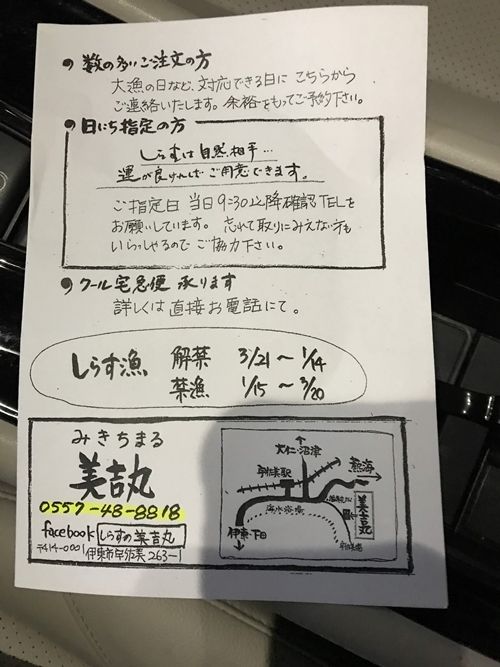 数の多いご注文の方
大漁の日など、対応できる日に こちらから
ご連絡いたします。余裕をもってご予約下さい。
日にち指定の方
しらすは自然相手…
運が良ければご用意できます。
ご指定日 当日9:30以降確認TELを
お願いしています。忘れて取りにみえない方も
いらっしゃるので ご協力下さい。
クール宅急便 承ります
詳しくは 直接お電話にて。
しらす漁 解禁 3/21〜1/14
禁漁 1/15〜3/20
みきちまる
美吉丸
0557-48-8818
facebook しらすの美吉丸
〒414-0001 伊東市宇佐美263-1
大仁・沼津
宇佐美駅
熱海
海水浴場
美吉丸
伊東・下田